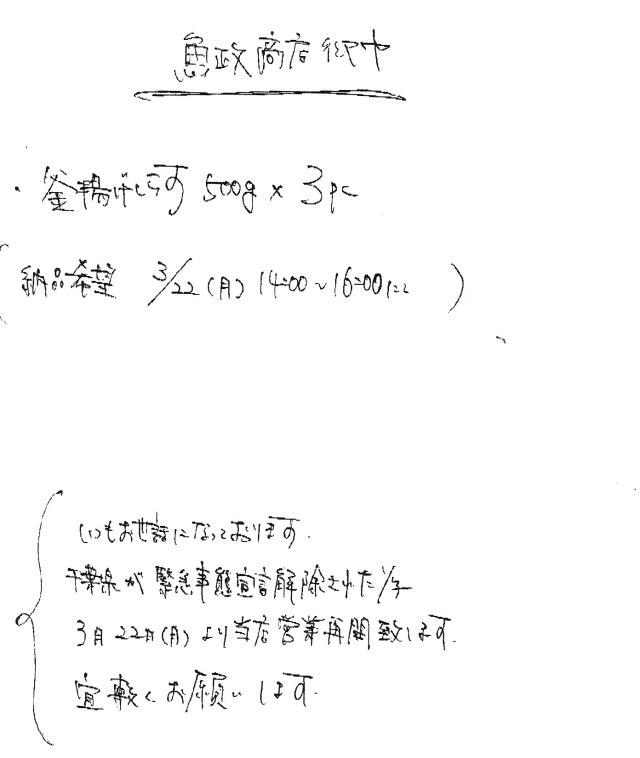 魚政商店御中
・釜揚げしらす 500g × 3pc
(納品希望 3/22(月) 14:00～16:00にて)
いつもお世話になっております.
千葉県が緊急事態宣言解除された
3月22日(月)より当店営業再開致します.
宜敷くお願いします.